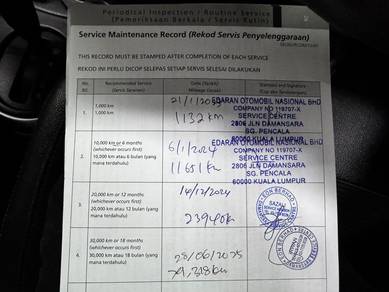 Periodical Inspection / Routine Service
(Pemeriksaan Berkala / Servis Rutin)
Service Maintenance Record (Rekod Servis Penyelenggaraan)
THIS RECORD MUST BE STAMPED AFTER COMPLETION OF EACH SERVICE
REKOD INI PERLU DICOP SELEPAS SETIAP SERVIS SELESAI DILAKUKAN
No.
Recommended Service
(Servis Saranan)
Date (Tarikh)
Mileage (Jarak)
Stamped and Signature
1.
1,000 km
1,000 km
1132 km
EDARAN OTOMOBIL NASIONAL BHD
COMPANY NO 119707-X
SERVICE CENTRE
2806 JLN DAMANSARA
SG. PENCALA
60000 KUALA LUMPUR
2.
10,000 km or 6 months
(whichever occurs first)
10,000 km atau 6 bulan (yang
mana terdahulu)
6/1/2024
11651 km
EDARAN OTOMOBIL NASIONAL BHD
COMPANY NO 119707-X
SERVICE CENTRE
2806 JLN DAMANSARA
SG. PENCALA
60000 KUALA LUMPUR
3.
20,000 km or 12 months
(whichever occurs first)
20,000 km atau 12 bulan (yang
mana terdahulu)
14/12/2024
4.
30,000 km or 18 months
(whichever occurs first)
30,000 km atau 18 bulan (yang
mana terdahulu)
28/06/2025